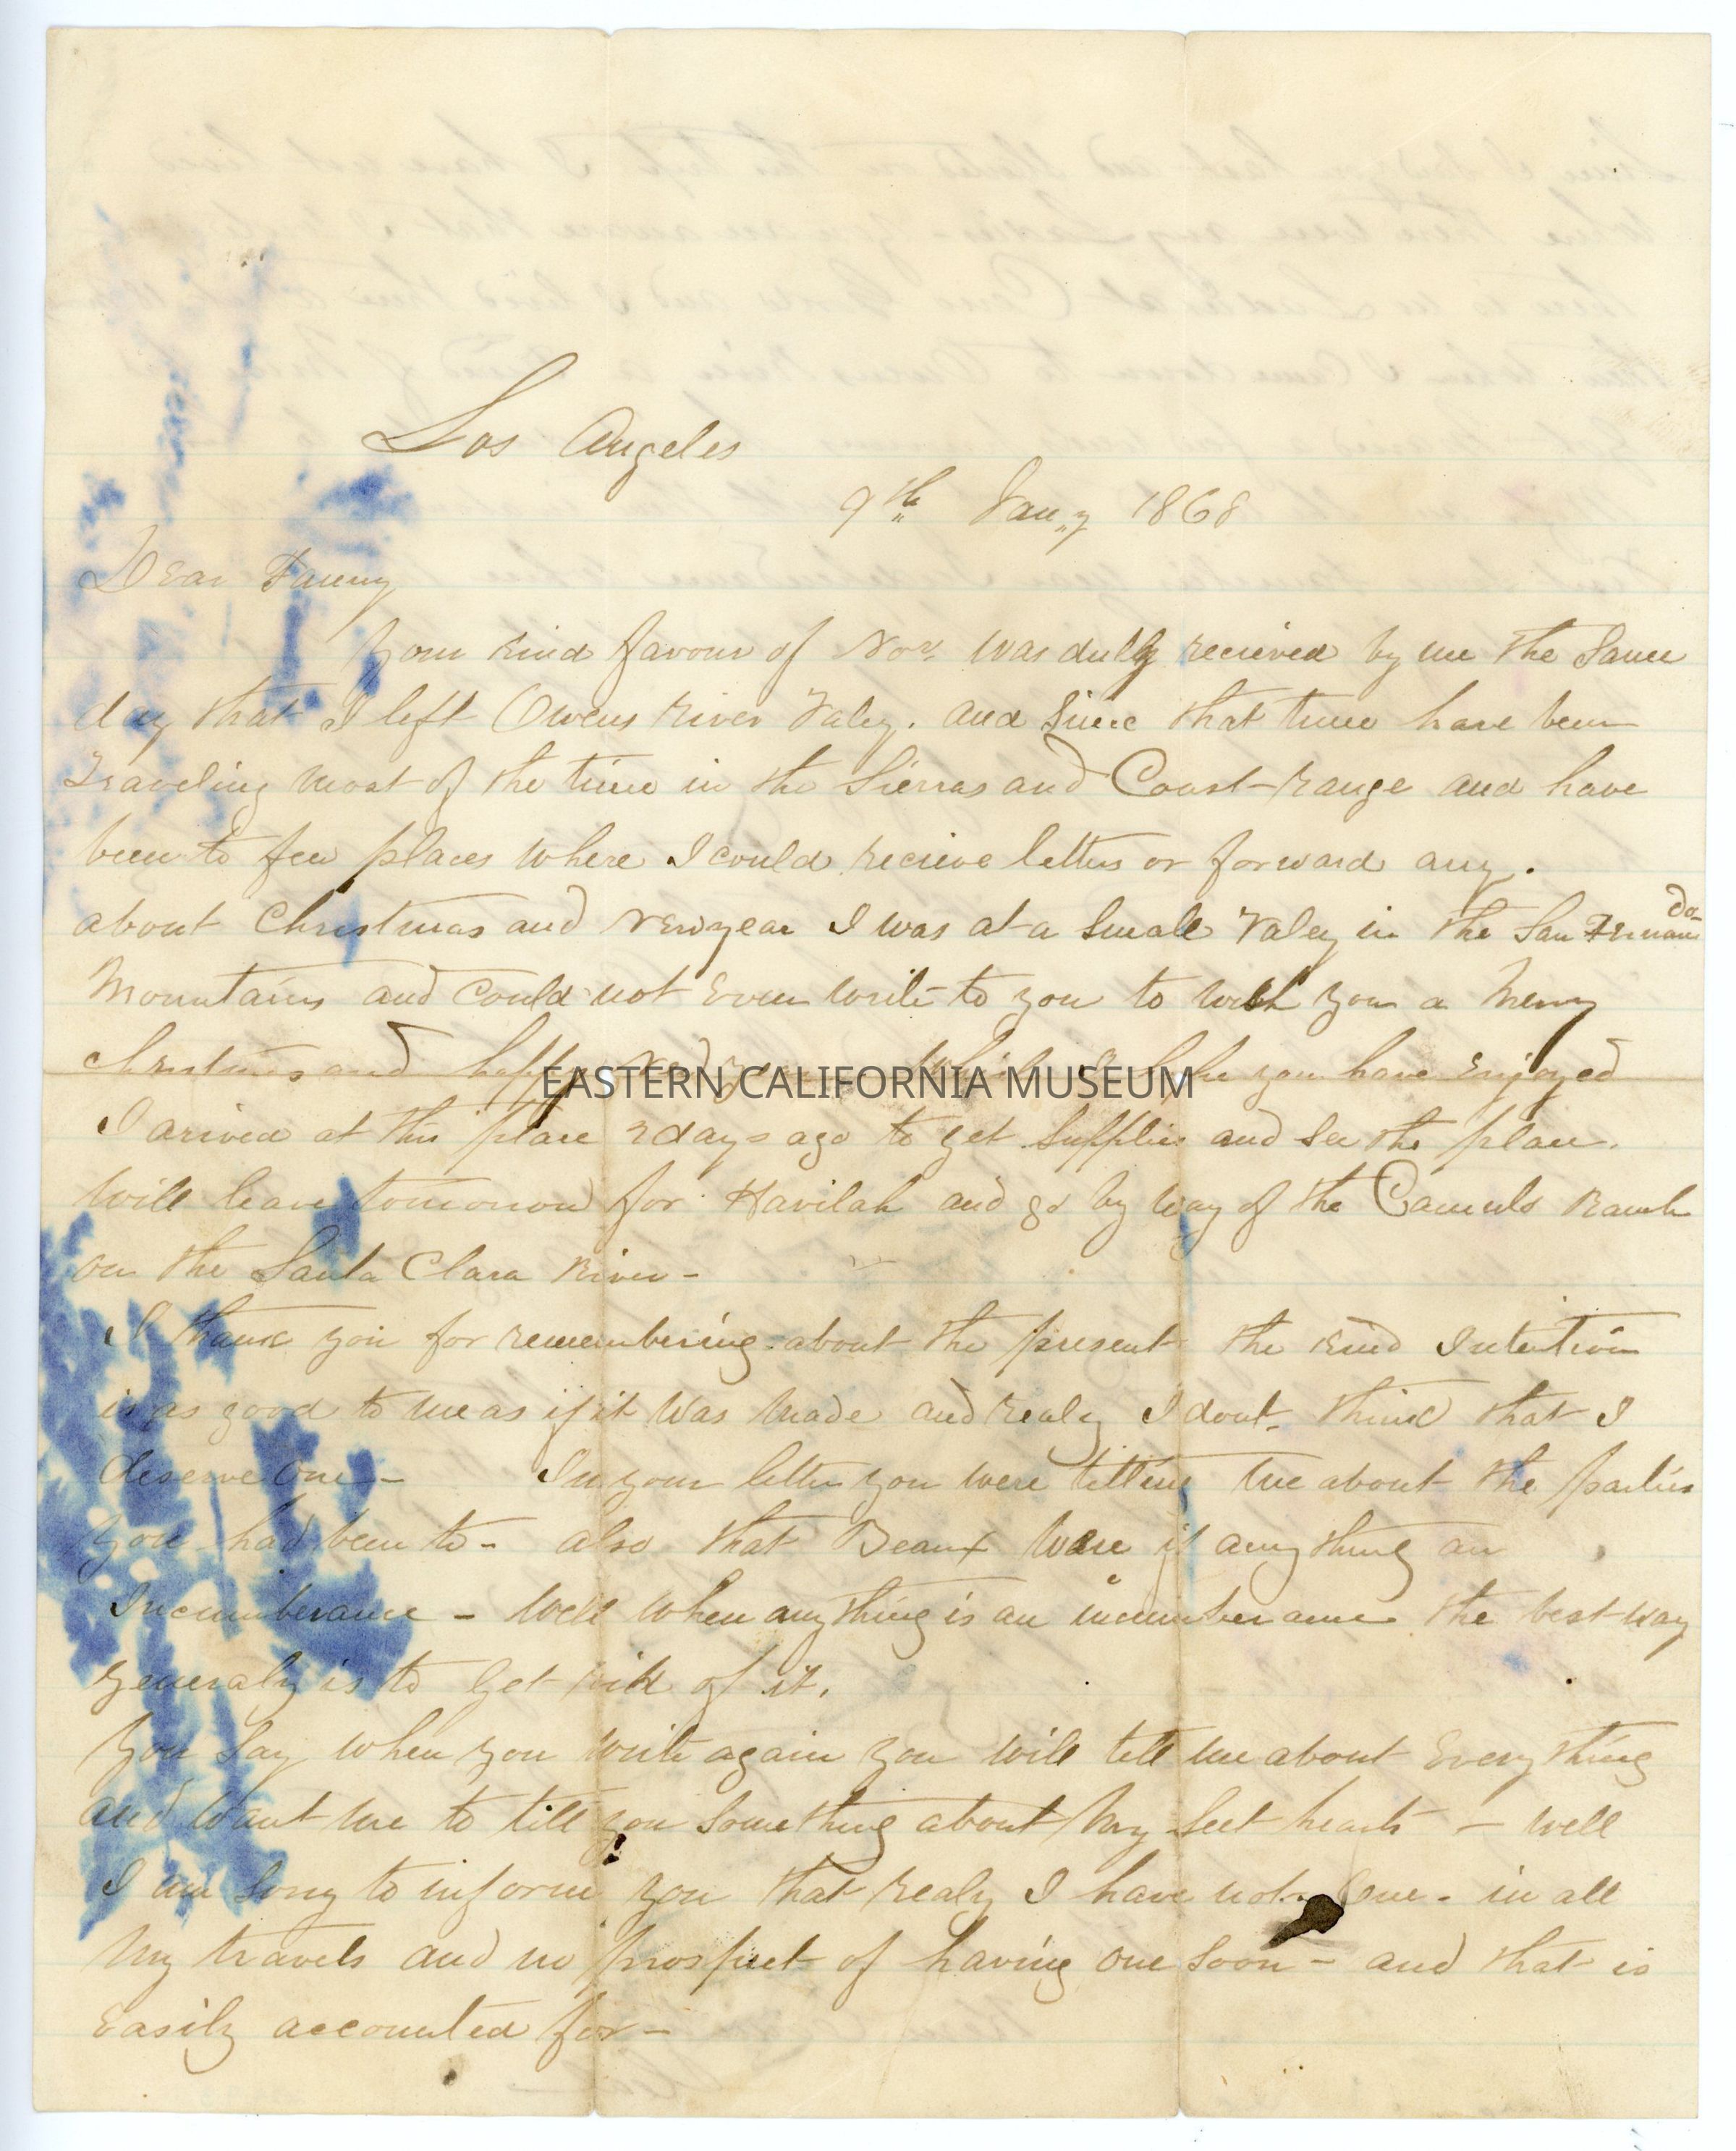 Los Angeles
9th Jany 1868
Dear Fanny
Your kind favour of Nov. was dully recieved by me the same
day that I left Owens River Valey. and since that time have been
Traveling most of the time in the Sierras and Coast-Range and have
been to few places where I could recieve letters or forward any.
about Christmas and Newyear I was at a small Valey in the San Fernando
Mountains and could not Even write to you to wish you a Merry
christmas and happy you have Enjoyed
EASTERN CALIFORNIA MUSEUM
I arived at this place 2 days ago to get supplies and see the place.
Will leave tomorrow for Havilah and go by way of the Camulos Ranch
on the Santa Clara River -
I thank you for remembering about the present the kind Intention
is as good to me as if it was made and realy I dont think that I
deserve one - In your letter you were telling me about the parties
you had been to - also that Beaux were if any thing an
Incumberance - Well when any thing is an incumberance the best way
generaly is to get rid of it.
You say when you write again you will tell me about Every thing
and want me to tell you something about my Seet hearts - well
I am sorry to inform you that realy I have not one - in all
my travels and no prospect of having one soon - and that is
Easily accounted for -